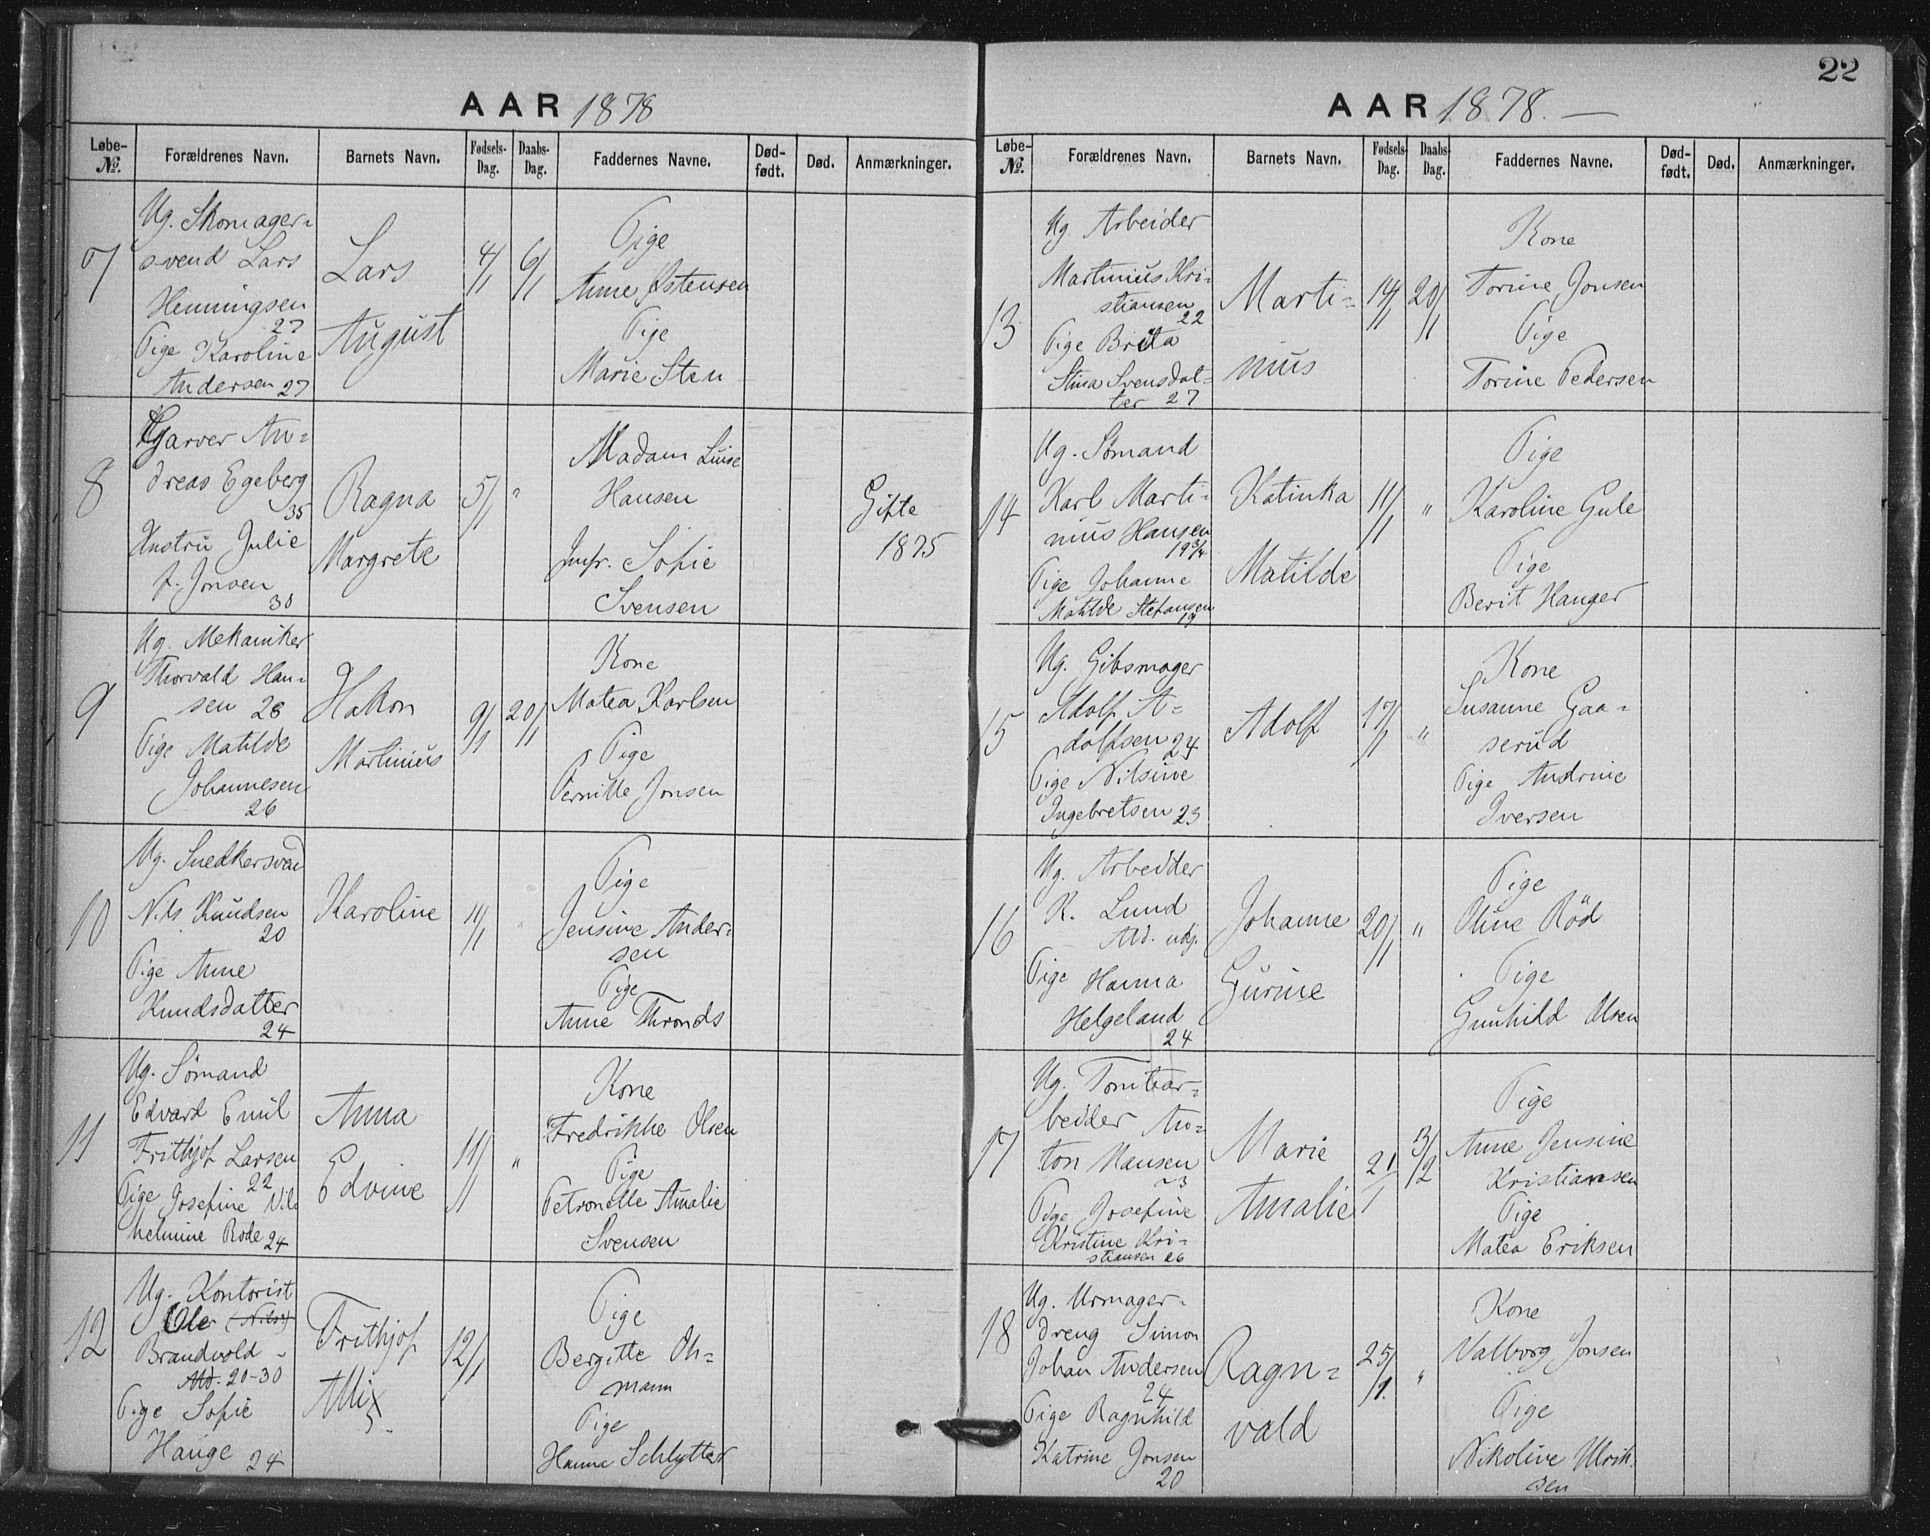 AAR 1878
Løbe-№.
Forældrenes Navn.
Barnets Navn.
Fødsels-Dag.
Daabs-Dag.
Faddernes Navne.
Død-født.
Død.
Anmærkninger.
7
Ug. Skomager-
svend Lars
Henningsen
27
Pige Karoline
Andersen 27
Lars
August
4/1
6/1
Pige
Anne Østensen
Pige
Marie Sten
8
Garver An-
dreas Egeberg
35
Hustru Julie
f. Jonsen
30
Ragna
Margrete
5/1
"
Madam Luise
Hansen
Jmfr. Sofie
Svensen
Gifte
1875
9
Ug. Mekaniker
Thorvald Han-
sen 28
Pige Matilde
Johannesen
26
Hakon
Martinius
9/1
20/1
Kone
Matea Karlsen
Pige
Pernille Jonsen
10
Ug. Snedkersvend
Nils Knudsen
20
Pige Anne
Knudsdatter
24
Karoline
11/1
"
Pige
Jensine Ander-
sen
Pige
Anne Thronds
11
Ug. Sømand
Edvard Emil
Frithjof Larsen
22
Pige Josefine Vil-
helmine Rode 24
Anna
Edvine
11/1
"
Kone
Fredrikke Olsen
Pige
Petronelle Amalie
Svensen
12
Ug. Kontorist
Ole (Nils)
Brandvold -
Ald. 20-30
Pige Sofie
Hauge 24
Frithjof
12/1
Pige
Bergitte Oh-
mann
Pige
Hanna Schlytter
22
AAR 1878. —
Løbe-№.
Forældrenes Navn.
Barnets Navn.
Fødsels-Dag.
Daabs-Dag.
Faddernes Navne.
Død-født.
Død.
Anmærkninger.
13
Ug. Arbeider
Martinius Kri-
stiansen
22
Pige Brita
Stina Svensdat-
ter 27
Marti-
nius
14/1
20/1
Kone
Torine Jonsen
Pige
Torine Pedersen
14
Ug. Sømand
Karl Marti-
nius Hansen
19 3/4
Pige Johanne
Matilde Stefansen
19
Katinka
Matilde
11/1
"
Pige
Karoline Gule
Pige
Berit Hanger
15
Ug. Gibsmager
Adolf A-
dolfsen 24
Pige Nilsine
Ingebretsen 23
Adolf
17/1
"
Kone
Susanne Gaa-
serud
Pige Andrine
Iversen
16
Ug. Arbeider
K. Lund
Ald. udg.
Pige Hanna
Helgeland
24
Johanne
Gurine
20/1
"
Pige
Oline Röd
Pige
Gunhild Olsen
17
Ug. Tomtear-
beider An-
ton Hansen
23
Pige Josefine
Kristine Kri-
stiansen 26
Marie
Amalie
21/1
3/2
Pige
Anne Jensine
Kristiansen
Pige
Matea Eriksen
18
Ug. Urmager-
dreng Simon
Johan Andersen
24
Pige Ragnhild
Katrine Jonsen
20
Ragn-
vald
25/1.
"
Kone
Valborg Jonsen
Pige
Nikoline Ulrik-
sen